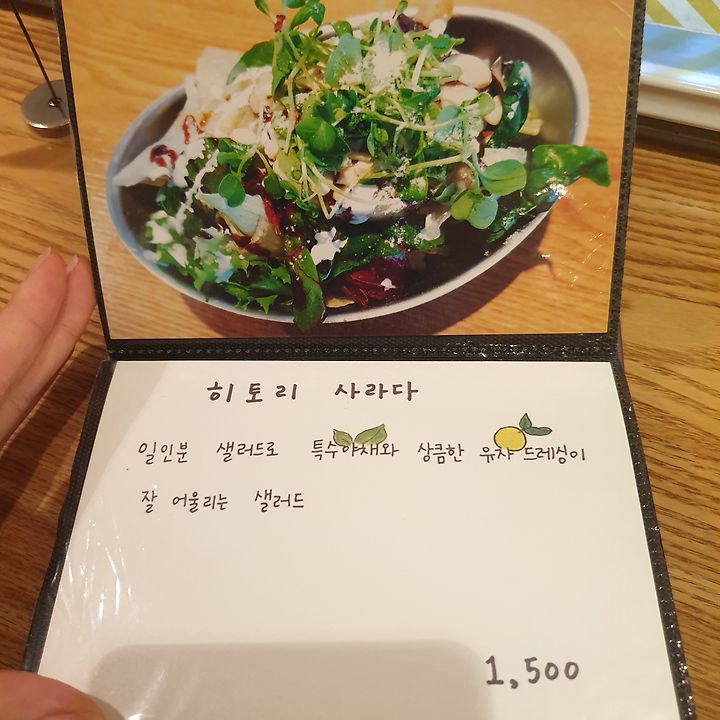 히토리 사라다
일인분 샐러드로 특수야채와 상큼한 유자 드레싱이
잘 어울리는 샐러드
1,500